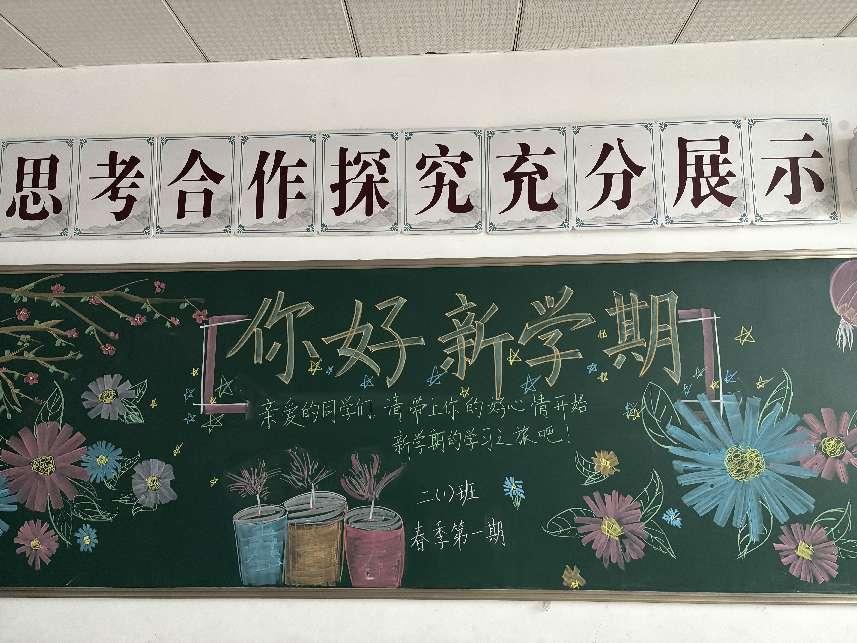 思考合作探究充分展示
你好新学期
亲爱的同学们 请带上你的好心情开始
新学期的学习之旅吧！
二（1）班
春季第一期